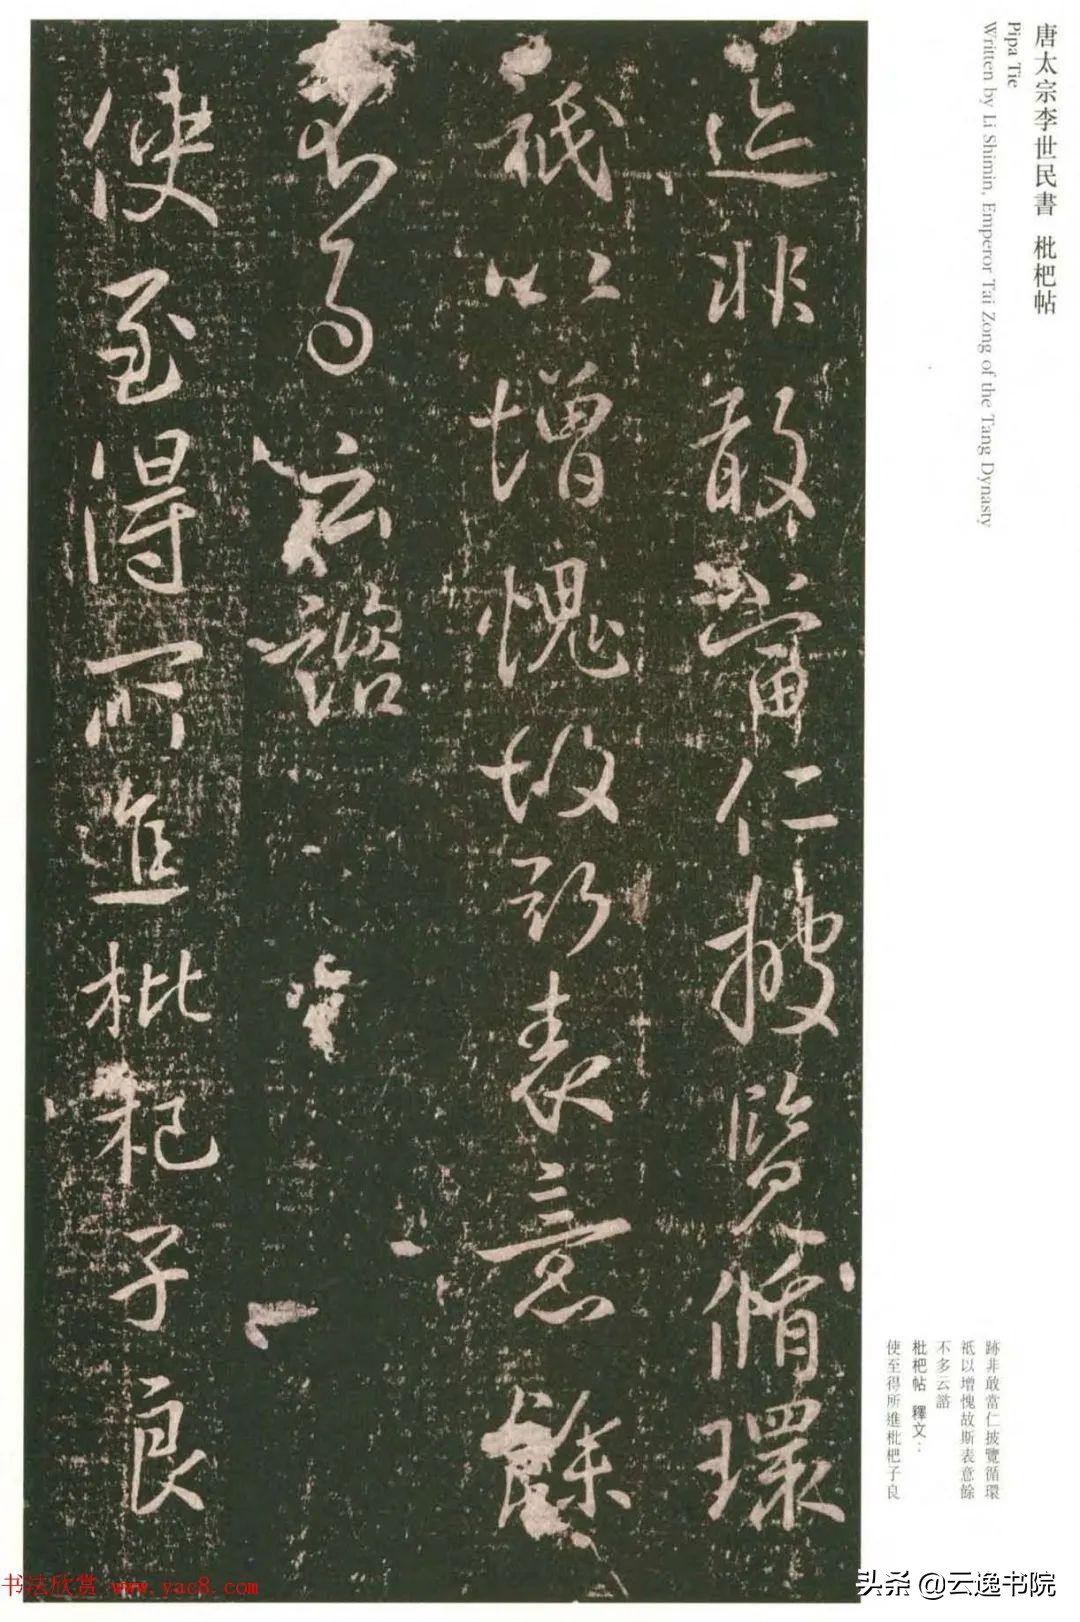 唐太宗李世民書 枇杷帖
Pipa Tie
Written by Li Shimin, Emperor Tai Zong of the Tang Dynasty
迹非敢當仁披覽循環
祇以增愧故斯表意餘
不多云諮
使至得所進枇杷子良
跡非敢當仁披覽循環
祇以增愧故斯表意餘
不多云諮
枇杷帖 釋文：
使至得所進枇杷子良
书法欣赏 www.yac8.com
头条 @云逸书院